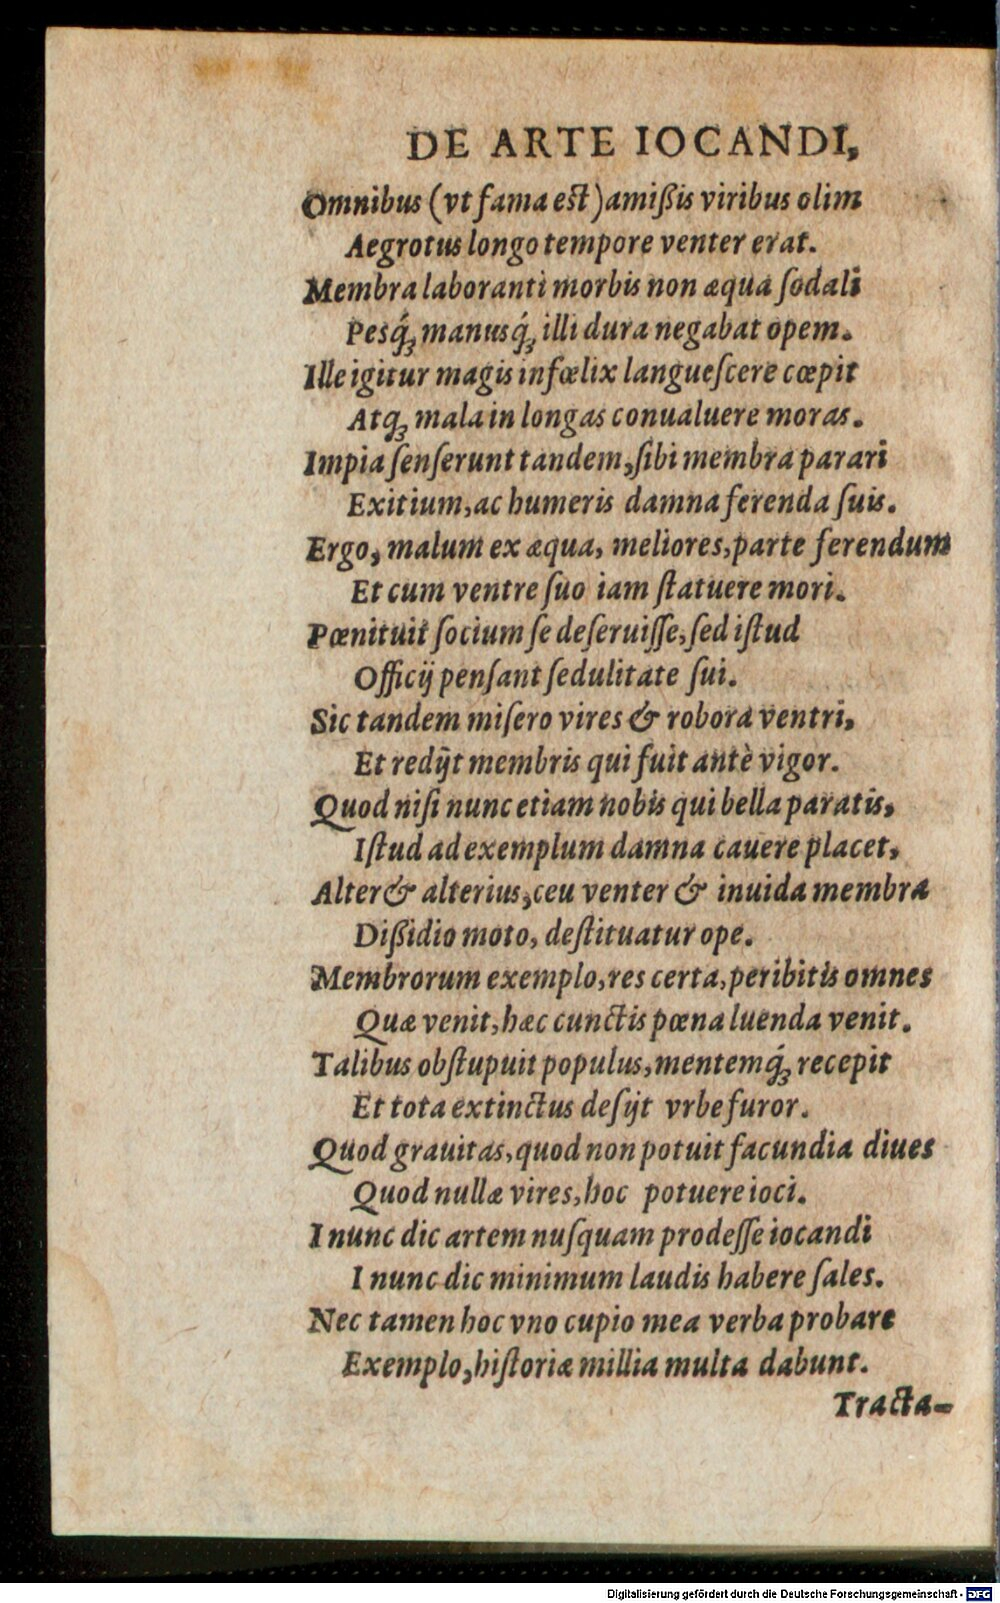 DE ARTE IOCANDI,
Omnibus (vt fama est) amißis viribus olim
Aegrotus longo tempore venter erat.
Membra laboranti morbis non æqua ſodali
Pesq́ꝫ manusq́ꝫ illi dura negabat opem.
Ille igitur magis infœlix langueſcere cœpit
Atqꝫ mala in longas conualuere moras.
Impia ſenſerunt tandem, ſibi membra parari
Exitium, ac humeris damna ferenda ſuis.
Ergo, malum ex æqua, meliores, parte ferendum
Et cum ventre ſuo iam ſtatuere mori.
Pœnituit ſocium ſe deſeruiſſe, ſed iſtud
Officij penſant ſedulitate ſui.
Sic tandem miſero vires & robora ventri,
Et redijt membris qui fuit antè vigor.
Quod niſi nunc etiam nobis qui bella paratis,
Iſtud ad exemplum damna cauere placet,
Alter & alterius, ceu venter & inuida membra
Dißidio moto, deſtituatur ope.
Membrorum exemplo, res certa, peribitis omnes
Quæ venit, hæc cunctis pœna luenda venit.
Talibus obſtupuit populus, mentemq́ꝫ recepit
Et tota extinctus deſijt vrbe furor.
Quod grauitas, quod non potuit facundia diues
Quod nullæ vires, hoc potuere ioci.
I nunc dic artem nuſquam prodeſſe iocandi
I nunc dic minimum laudis habere ſales.
Nec tamen hoc vno cupio mea verba probare
Exemplo, hiſtoriæ millia multa dabunt.
Tracta-
Digitalisierung gefördert durch die Deutsche Forschungsgemeinschaft - DFG